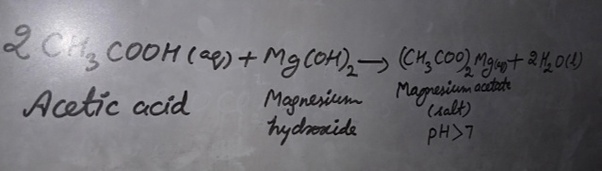 2 CH₃COOH (aq) + Mg(OH)₂ → (CH₃COO)₂Mg(aq) + 2H₂O(l)
Acetic acid
Magnesium
hydroxide
Magnesium acetate
(salt)
pH>7